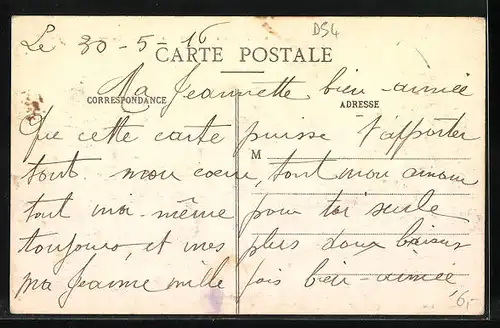 Le 30-5-16
DS4
CARTE POSTALE
Ma Jeannette bien-aimée
CORRESPONDANCE
ADRESSE
Que cette carte puisse t'apporter
M
tout mon cœur, tout mon amour
tout moi-même pour toi seule
toujours, et mes plus doux baisers
ma Jeanne mille fois bien-aimée